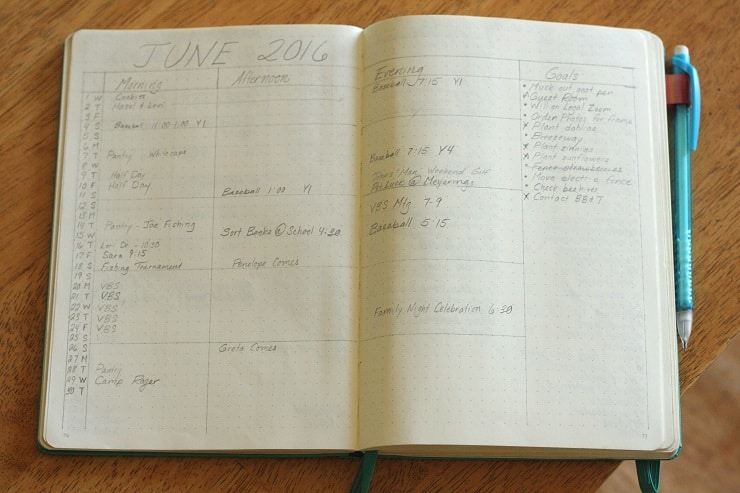 JUNE 2016
Morning Afternoon Evening Goals
1 W Baseball 7:15 Y1
2 T
3 F
4 S Baseball 11:00-1:00 Y1
5 S
6 M
7 T Pantry Baseball 7:15 Y4
8 W
9 T Half Day Weekend Golf
10 F Half Day
11 S Baseball 1:00 Y1
12 S VBS Mtg. 7-9
13 M
14 T Pantry - Joe Fishing Baseball 5:15
15 W Sort Books @ School 4:30
16 T Dr. - 10:30
17 F Sara 9:15
18 S Fishing Tournament Penelope Comes
19 S
20 M VBS
21 T VBS
22 W VBS Family Night Celebration 6:30
23 T VBS
24 F VBS
25 S
26 S Greta Comes
27 M
28 T Pantry
29 W Camp Roger
30 T
• Muck out goat pen
Guest Room
• Order Photos for
x Plant dahlias
• Breezeway
x Plant zinnias
x Plant sunflowers
• Fence strawberries
• Move electric fence
• Check beehives
x Contact BB&T